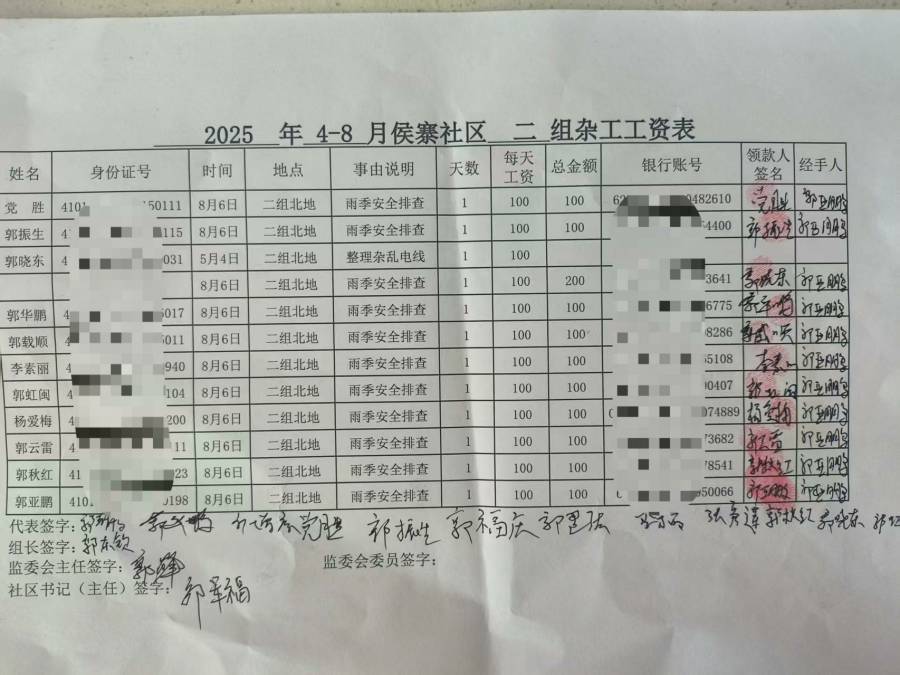 2025 年 4-8 月侯寨社区 二 组杂工工资表
姓名 身份证号 时间 地点 事由说明 天数 每天工资 总金额 银行账号 领款人签名 经手人
党 胜 4101 150111 8月6日 二组北地 雨季安全排查 1 100 100 62 0482610 党胜 郭亚鹏
郭振生 41 115 8月6日 二组北地 雨季安全排查 1 100 100 4400 郭振生 郭亚鹏
郭晓东 4 031 5月4日 二组北地 整理杂乱电线 1 100
8月6日 二组北地 雨季安全排查 1 100 200 3641 郭晓东 郭亚鹏
郭华鹏 4 5017 8月6日 二组北地 雨季安全排查 1 100 100 6775 郭亚鹏
郭载顺 4 8月6日 二组北地 雨季安全排查 1 100 100 8286 郭亚鹏
李素丽 4 940 8月6日 二组北地 雨季安全排查 1 100 100 5108 郭亚鹏
郭虹闽 4 104 8月6日 二组北地 雨季安全排查 1 100 100 0407 郭亚鹏
杨爱梅 4 200 8月6日 二组北地 雨季安全排查 1 100 100 0 074889 杨爱梅 郭亚鹏
郭云雷 4 11 8月6日 二组北地 雨季安全排查 1 100 100 3682 郭亚鹏
郭秋红 4 23 8月6日 二组北地 雨季安全排查 1 100 100 8541 郭秋红 郭亚鹏
郭亚鹏 410 0198 8月6日 二组北地 雨季安全排查 1 100 100 950066 郭亚鹏 郭亚鹏
代表签字: 党胜 郭振生 郭福庆 郭秋红 郭晓东
组长签字: 郭东钦
监委会主任签字: 郭峰 监委会委员签字:
社区书记(主任)签字: 郭军福